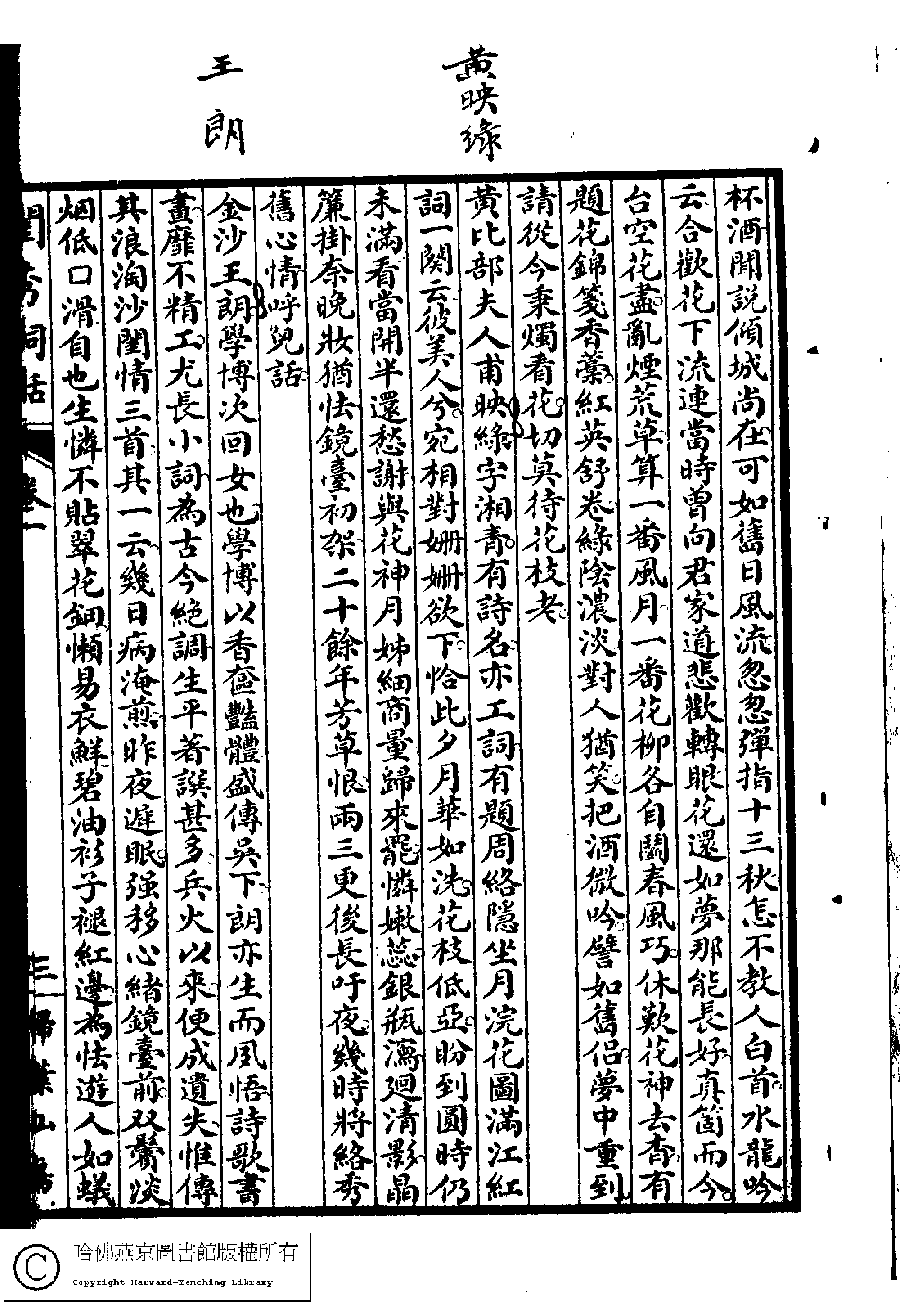 黃映綠
王朗
杯酒聞說傾城尚在可如舊日風流忽忽彈指十三秋怎不教人白首水龍吟
云合歡花下流連當時曾向君家道悲歡轉眼花還如夢那能長好真箇而今
台空花盡亂煙荒草算一番風月一番花柳各自鬪春風巧休歎花神去杳有
題花錦箋香藁紅英舒卷綠陰濃淡對人猶笑把酒微吟譬如舊侶夢中重到
請從今秉燭看花切莫待花枝老
黃比部夫人甫映綠字湘青有詩名亦工詞有題周絡隱坐月浣花圖滿江紅
詞一闋云彼美人兮宛相對姍姍欲下恰此夕月華如洗花枝低亞盼到圓時仍
未滿看當開半還愁謝與花神月姊細商量歸來罷憐嫩蕊銀瓶瀉迴清影晶
簾掛奈晚妝猶怯鏡臺初架二十餘年芳草恨兩三更後長吁夜幾時將絡秀
舊心情呼兒話
金沙王朗學博次回女也學博以香奩豔體盛傳吳下朗亦生而夙悟詩歌書
畫靡不精工尤長小詞為古今絶調生平著譔甚多兵火以來便成遺失惟傳
其浪淘沙閨情三首其一云幾日病淹煎昨夜遲眠强移心緒鏡臺前双鬢淡
烟低口滑自也生憐不貼翠花鈿懶易衣鮮碧油衫子褪紅邊為怯遊人如蟻
閨秀詞話
卷一
三
掃葉山房
哈佛燕京圖書館版權所有
Copyright Harvard-Yenching Library